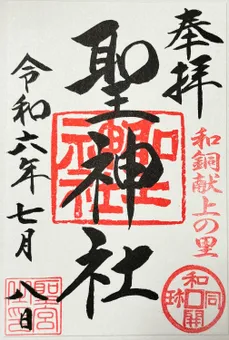 奉拝
和銅献上の里
聖神社
令和六年七月八日
和同開珎